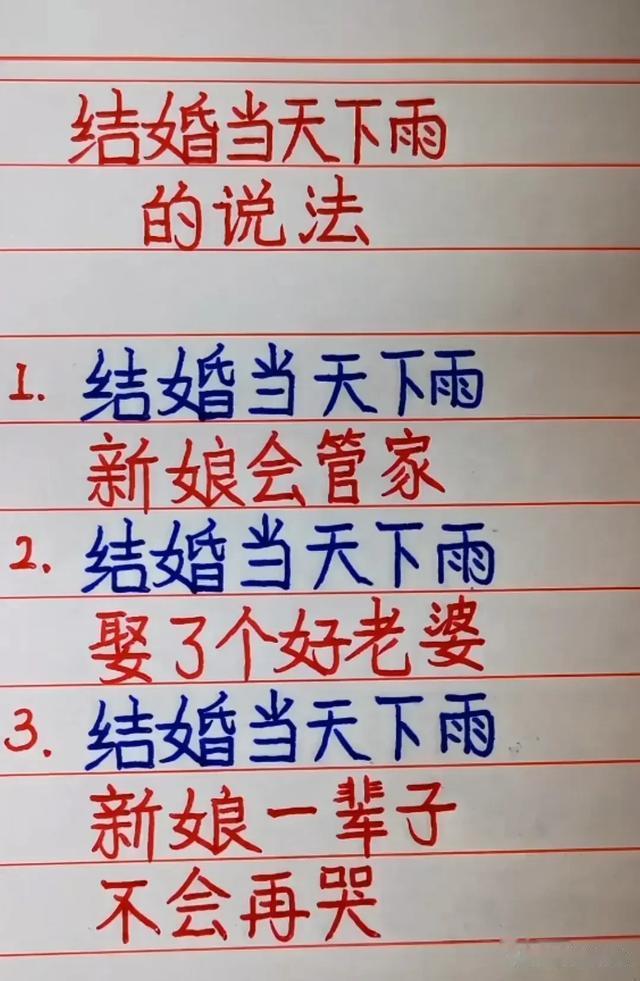 结婚当天下雨
的说法
1. 结婚当天下雨
新娘会管家
2. 结婚当天下雨
娶了个好老婆
3. 结婚当天下雨
新娘一辈子
不会再哭